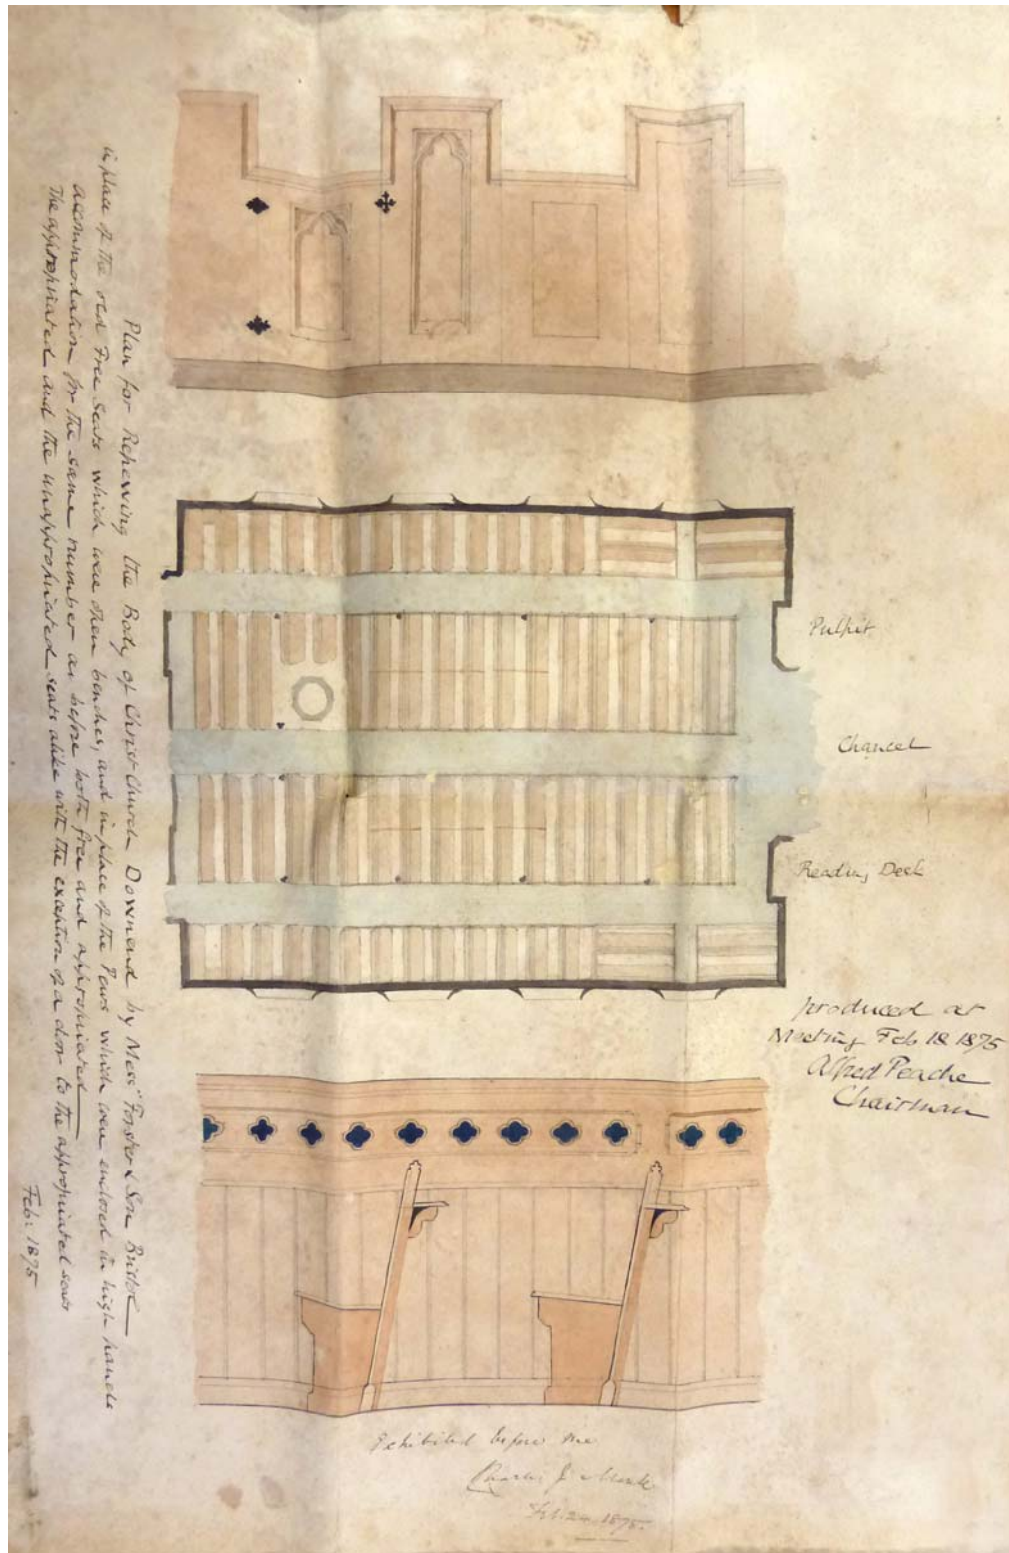 Plan for Repewing the Body of Christ Church Downend by Mess.rs Foster & Son Bristol
in place of the old Free Seats which were open benches, and in place of the Pews which were enclosed in high
accommodation for the same number as before both free and appropriated
The appropriated and the unappropriated seats alike with the exception of a door to the appropriated seats
Feb: 1875
Pulpit
Chancel
Reading Desk
produced at
Meeting Feb 18 1875
Alfred Peache
Chairman
Exhibited before me
Charles J. Monk
Feb. 1875.